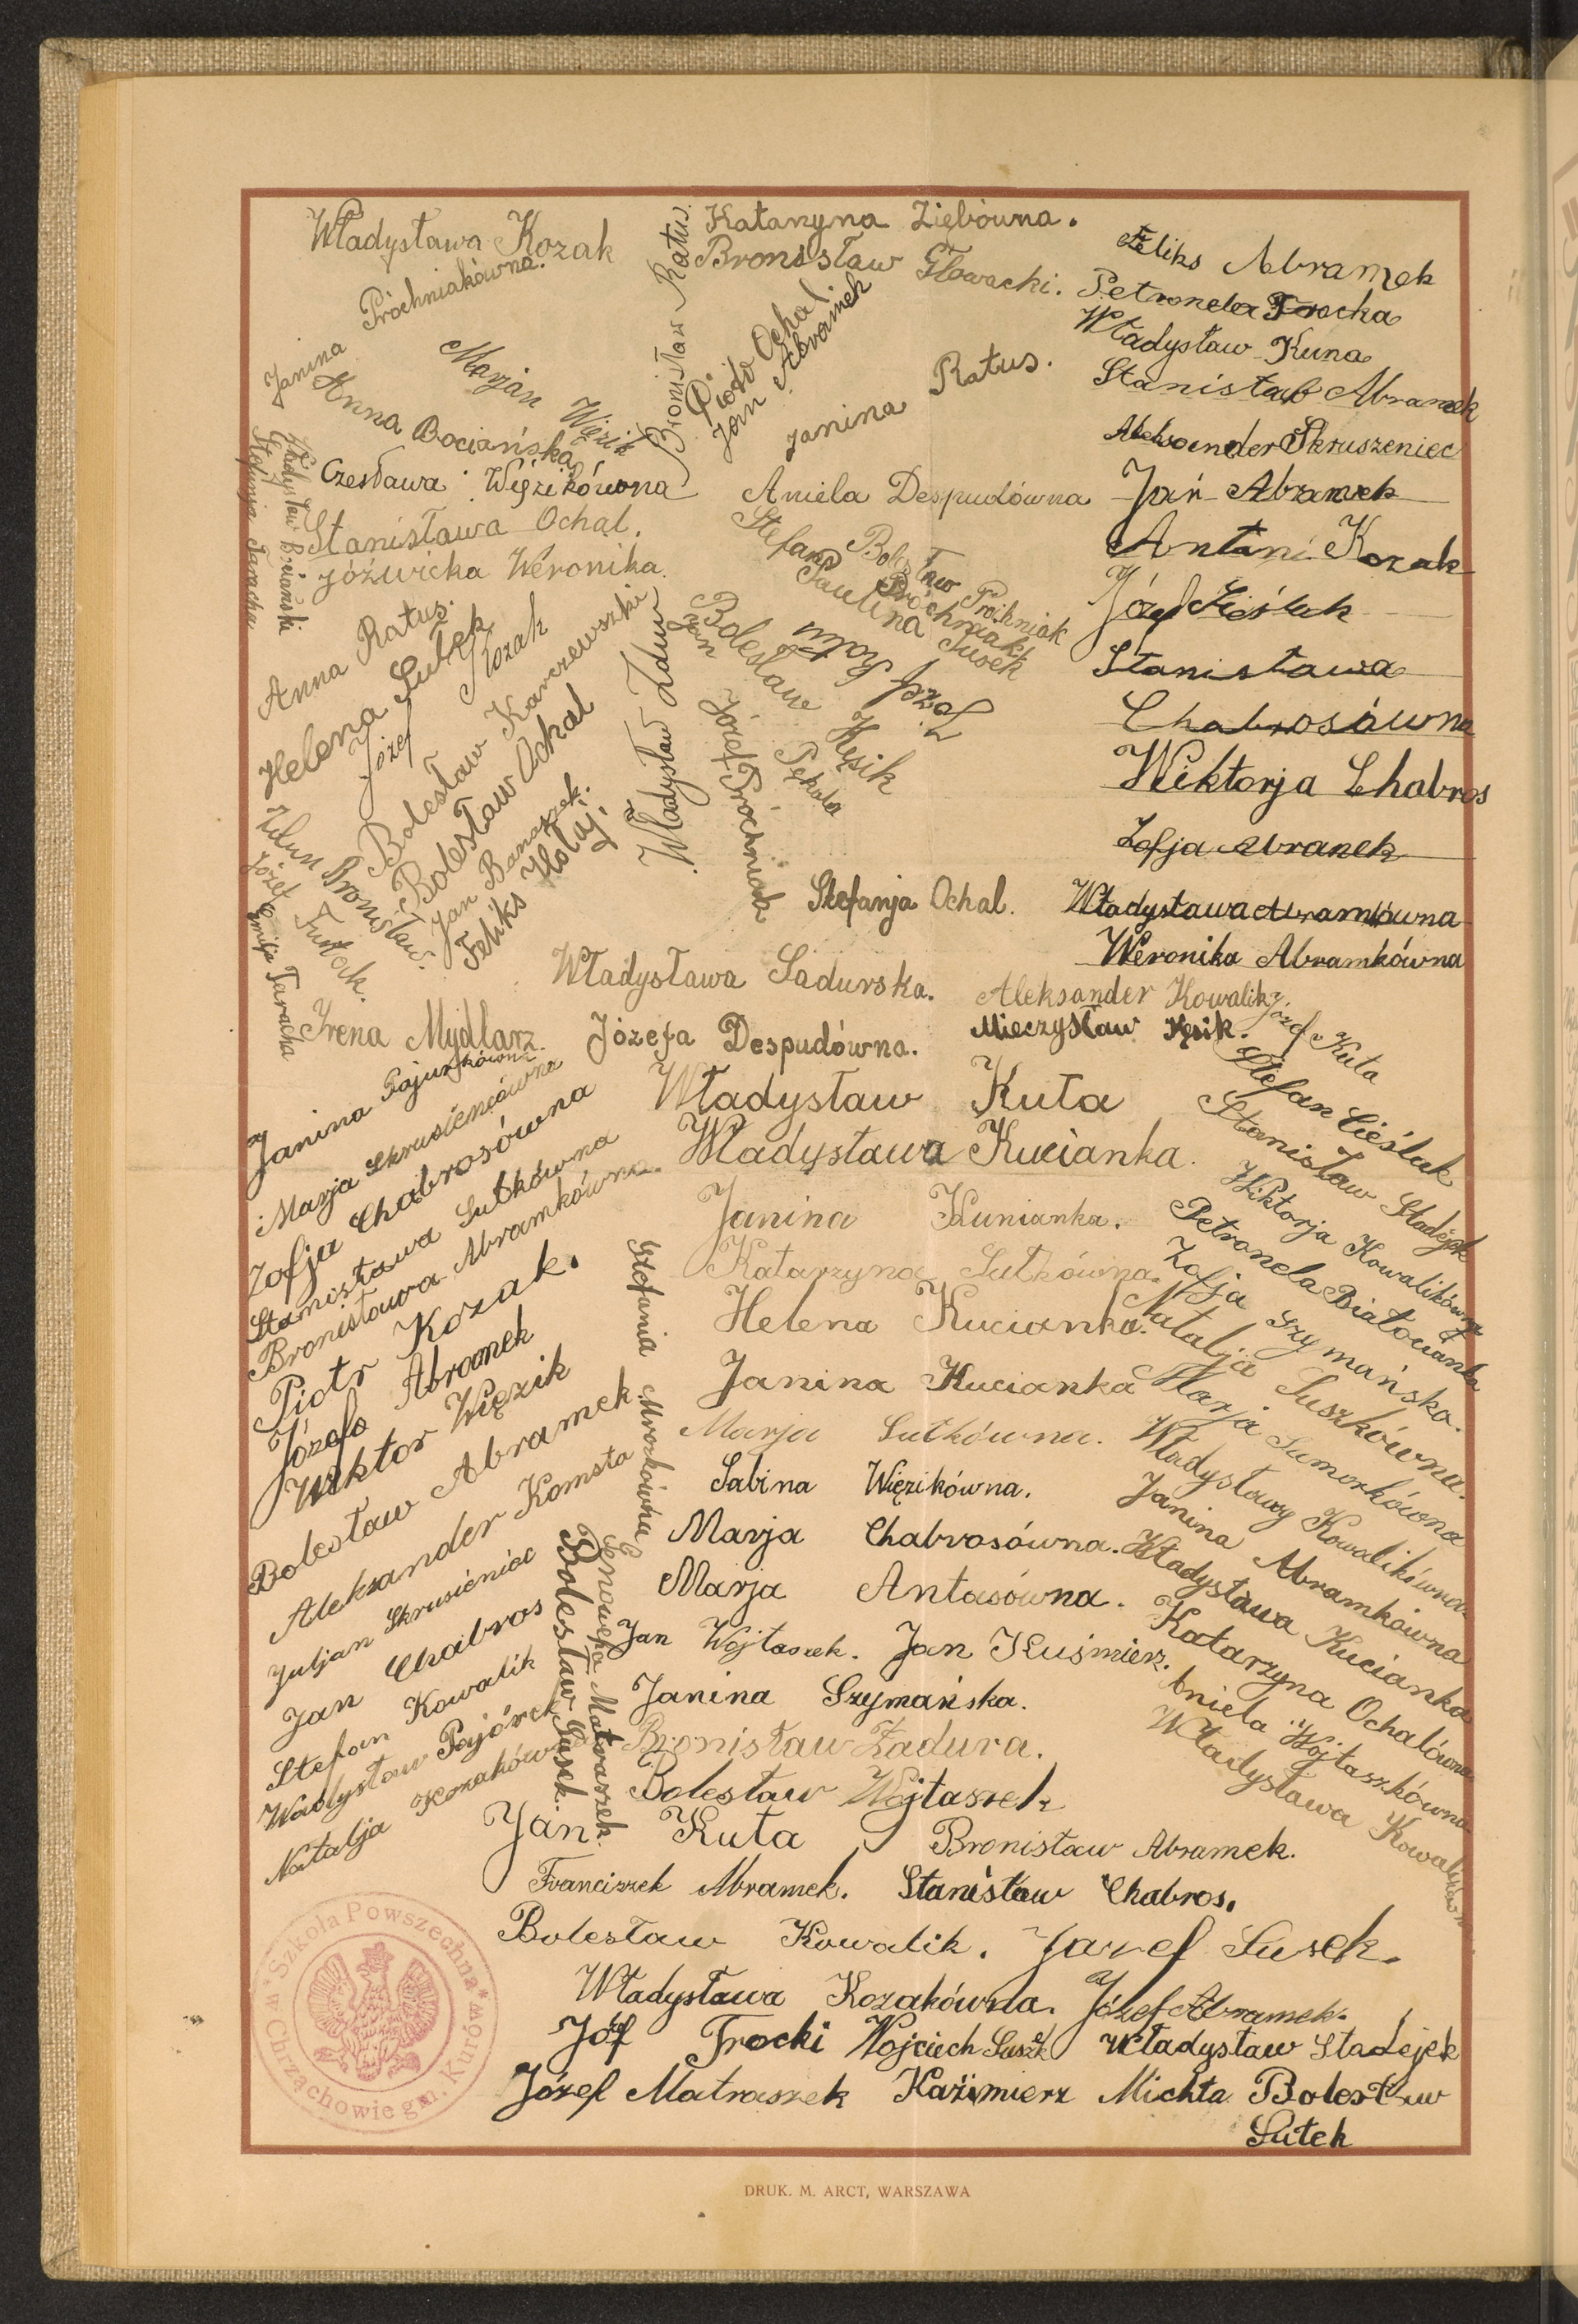 Władysława Kozak
Katarzyna Ziębówna.
Bronisław Głowacki.
Bronisław Ratus.
Janina Próchniakówna.
Marjan Więzik
Anna Bociańska
Piotr Ochal.
Jan Abramek
Janina Ratus.
Feliks Abramek
Petronela Trocka
Władysław Kuna
Stanisław Abramek
Aleksander Skruszeniec
Jan Abramek
Antoni Kozak
Józef Cieślak
Stanisława
Chabrosówna
Wiktorja Chabros
Zofja Abramek
Władysława Abramkówna
Weronika Abramkówna
Czesława Więzikówna
Aniela Despudówna
Stanisława Ochal.
Jóźwicka Weronika.
Władysław Bociański
Stefanja Taracha
Stefan Próchniak
Bolesław Próchniak
Paulina Susek
Józef Kołtun
Bolesław Kęsik
Jan Pękala
Józef Próchniak
Władysław Zdun
Anna Ratus.
Helena Sułek
Józef Kozak
Bolesław Karczewski
Bolesław Ochal
Jan Banaszek.
Feliks Hołaj.
Zdun Bronisław.
Józef Tustak.
Emilja Taracha
Stefanja Ochal.
Władysława Sadurska.
Aleksander Kowalik.
Irena Mydlarz.
Józefa Despudówna.
Mieczysław Kęsik.
Józef Kuta
Janina Pajurkówna
Marja Skrusieńcówna
Zofja Chabrosówna
Stanisława Sułkówna
Bronisława Abramkówna.
Piotr Kozak.
Józefa Abramek
Wiktor Więzik
Bolesław Abramek
Aleksander Komsta
Juljan Skrusieniec
Jan Chabros
Stefan Kowalik
Władysław Pajórek
Natalja Kozakówna
Stefania Mrozkówna
Genowefa Matraszek.
Bolesław Susek.
Władysław Kuta
Władysława Kucianka.
Janina Kunianka.
Katarzyna Sułkówna.
Helena Kucianka.
Janina Kucianka
Marja Sułkówna.
Sabina Więzikówna.
Marja Chabrosówna.
Marja Antasówna.
Jan Wojtaszek. Jan Kuśmierz.
Janina Szymańska.
Bronisław Zadura.
Bolesław Wojtaszek
Stefan Cieślak
Stanisław Stadejek
Wiktorja Kowalikówna
Petronela Białocianka
Zofja Szymańska.
Natalja Suszkówna.
Marja Sumorkówna
Władysława Kowalikówna.
Janina Abramkówna
Władysława Kucianka
Katarzyna Ochalówna
Aniela Wojtaszkówna
Władysława Kowalikówna
Jan Kuta Bronisław Abramek.
Franciszek Abramek. Stanisław Chabros.
Bolesław Kowalik. Józef Susek.
Władysława Kozakówna. Józef Abramek.
Józf Trocki Wojciech Suszek Władysław Stadejek
Józef Matraszek Kaźimierz Michta Bolesław
Sułek
* Szkoła Powszechna * w Chrząchowie gm. Kurów
DRUK. M. ARCT, WARSZAWA